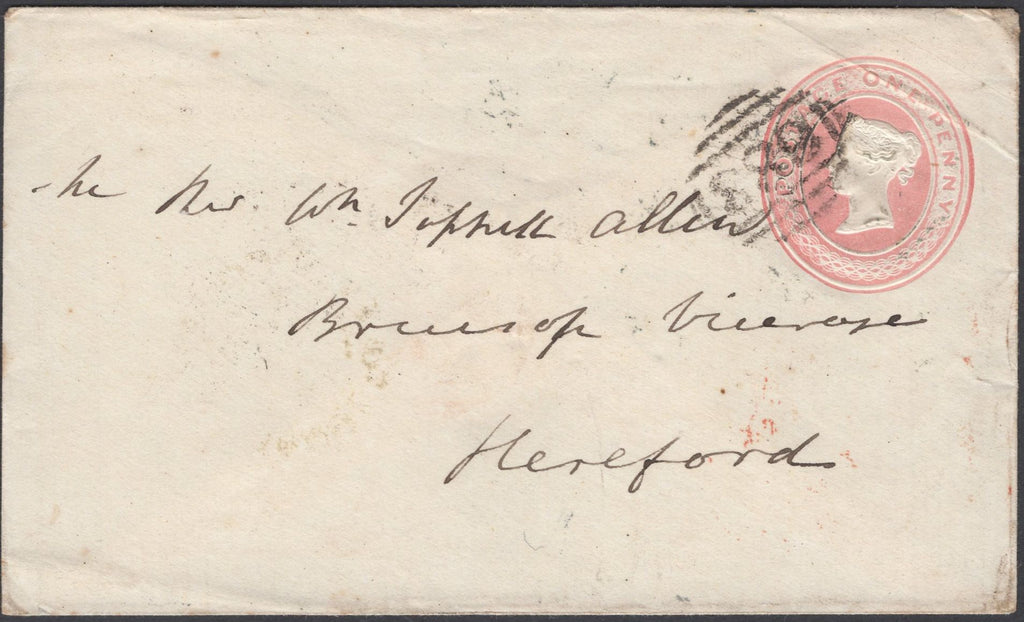 POSTAGE ONE PENNY
The Rev Wm Allen
Brinsop Vicarage
Hereford